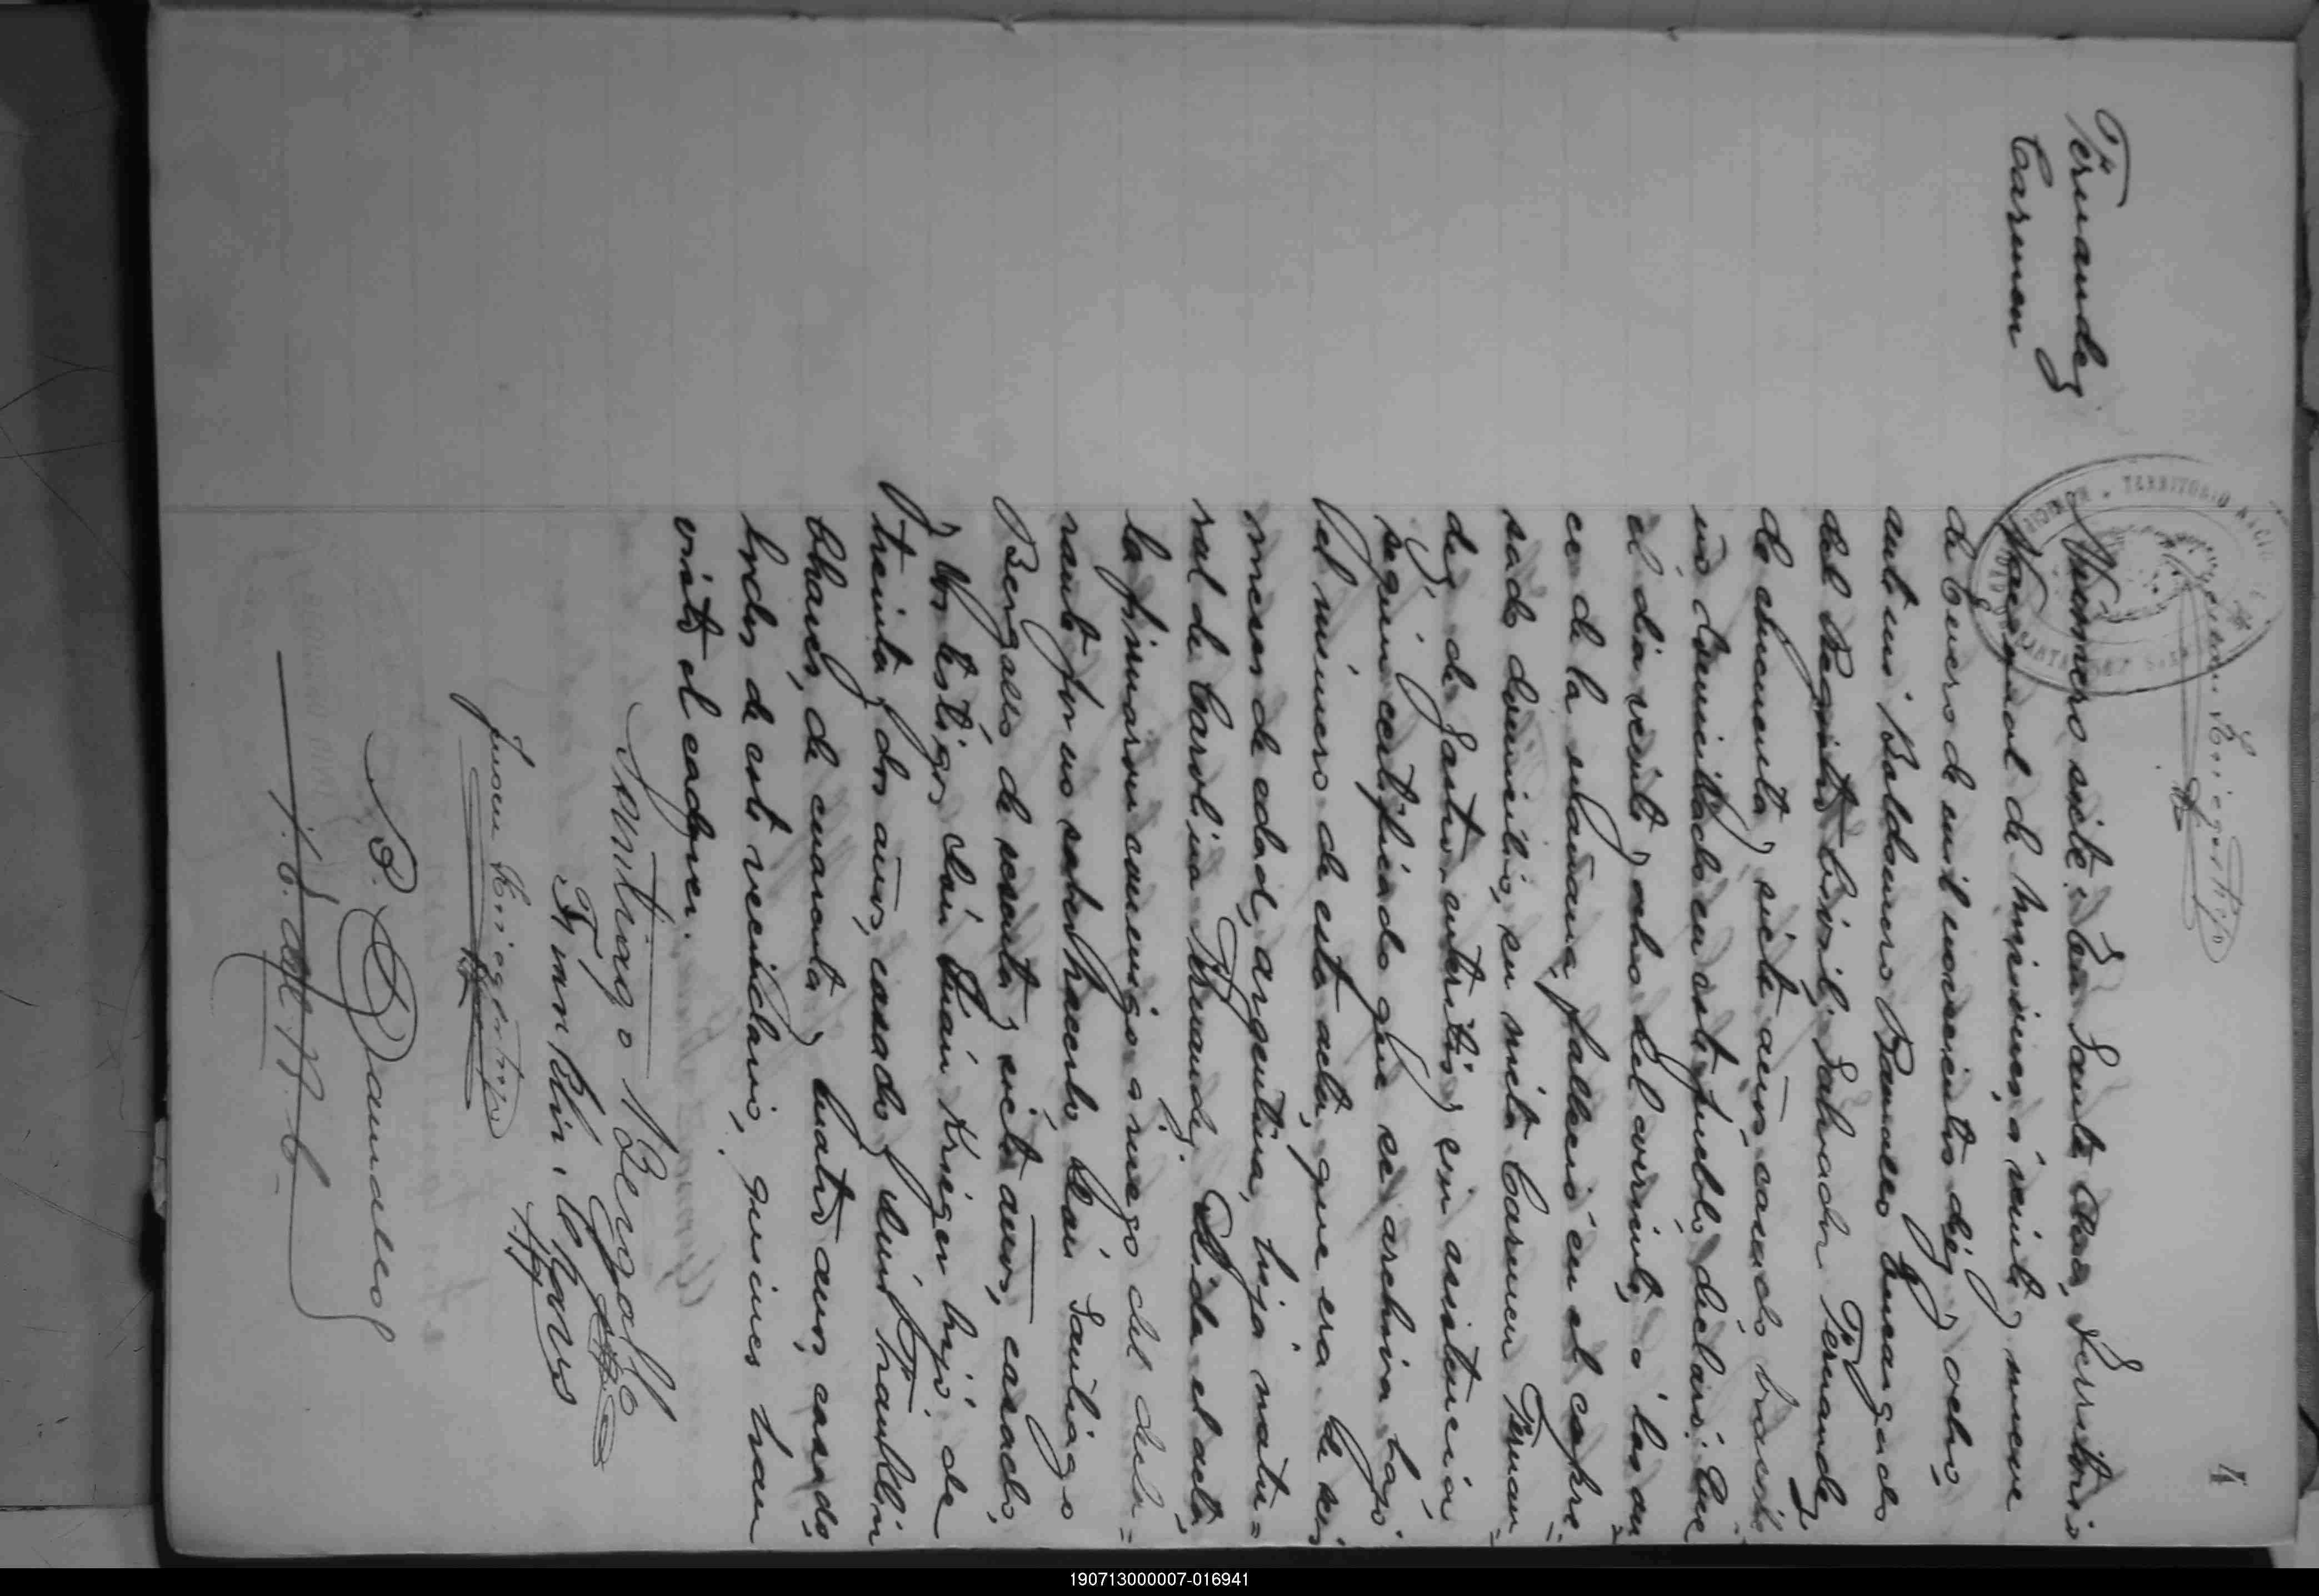 4
Juan Kriegertiz
TERRITORIO NACI
Fernandez
Carmen
Número siete: En Santa Ana, Territorio
Nacional de Misiones, a veinte y nueve
de Enero de mil novecientos diez y ocho,
ante mi Baldomero Encargado
del Registro Civil: Salvador Fernandez
de cincuenta y siete años, casado
domicilado en este pueblo, declaró: Que
el dia veinte y ocho del corriente, a las on
ce de la mañana, falleció en el expre=
sado domicilio, su nieta Carmen Fernan=
dez, de Gastro-enteritis, sin asistencia,
según certificado que se archiva bajo
el número de esta acta; que era de seis
meses de edad, argentina, hija natu=
ral de Carolina Fernandez. Leida el acta,
la firmaron conmigo a ruego del decla=
rante por no saber hacerlo, Don Santiago
Bergallo de sesenta y siete años, casado,
y los testigos, don Juan Krieger hijo, de
treinta y dos años, casado y don Franklin
Chaves, de cuarenta y cuatro años, casado,
todos de este vecindario, quienes han
visto el cadaver.
Santiago Bergallo
Franklin C. Chaves
Juan
B.
J. E. del R. C.
190713000007-016941